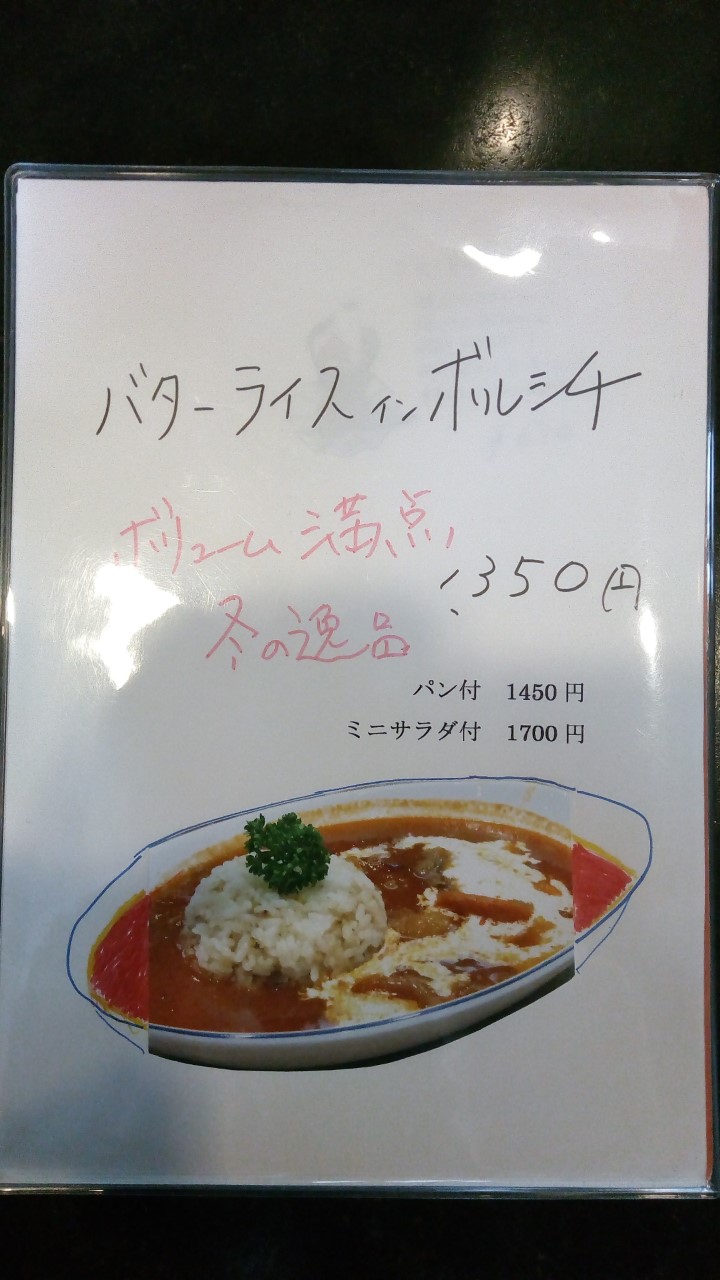 バターライスインボルシチ
ボリューム満点
1,350円
冬の逸品
パン付 1450円
ミニサラダ付 1700円